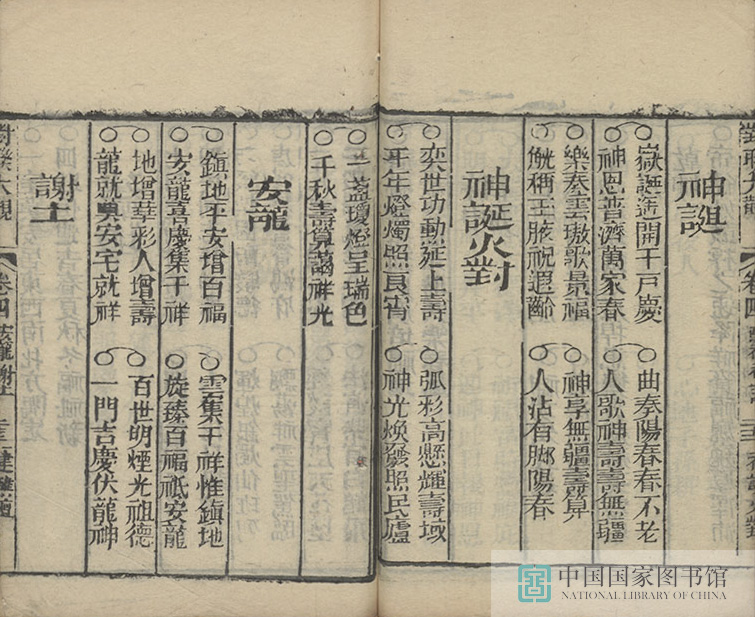 神誕
嶽誕遥開千戶慶
曲奏陽春春不老
神恩普濟萬家春
人歌神壽壽無疆
樂奏雲璈歌景福
神享無疆壽算
觥稱玉液祝遐齡
人沾有脚陽春
神誕火對
奕世功勳延上壽
弧彩高懸煇壽域
千年燈燭照良宵
神光煥發照民廬
一盞瓊燈呈瑞色
千秋壽算藹祥光
安龍
鎮地平安增百福
雲集千祥惟鎮地
安龍喜慶集千祥
旋臻百福祇安龍
地增華彩人增壽
百世明煙光祖德
龍就奥安宅就祥
一門吉慶伏龍神
謝土
對類大觀
卷四
安龍謝土
中国国家图书馆
NATIONAL LIBRARY OF CHINA